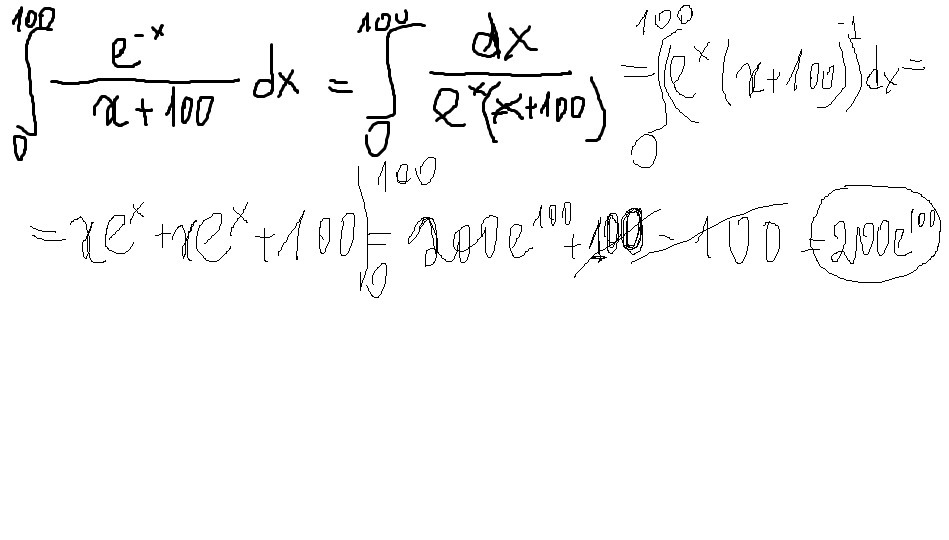 ∫₀¹⁰⁰ e⁻ˣ/(x+100) dx = ∫₀¹⁰⁰ dx/(eˣ(x+100)) = ∫₀¹⁰⁰ (eˣ(x+100)⁻¹) dx =
= xeˣ + xeˣ + 100 |₀¹⁰⁰ = 200e¹⁰⁰ + 100 - 100 = 200e¹⁰⁰